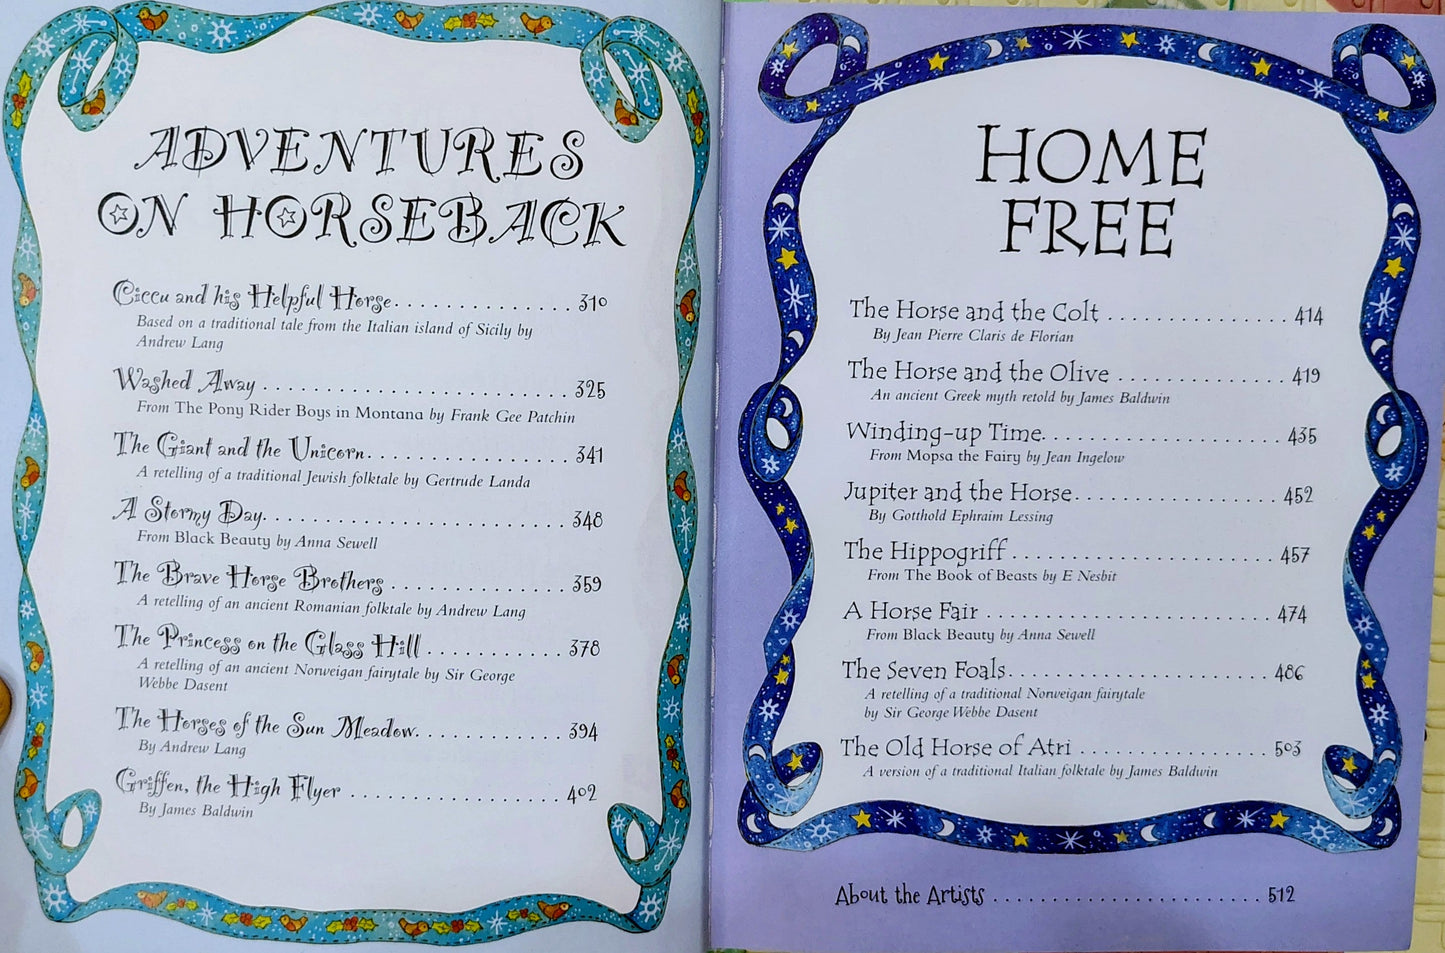 ADVENTURES
ON HORSEBACK
Ciccu and his Helpful Horse. . . . . . . . . . . . . . . . 310
Based on a traditional tale from the Italian island of Sicily by
Andrew Lang
Washed Away . . . . . . . . . . . . . . . . . . . . . . . . . . 325
From The Pony Rider Boys in Montana by Frank Gee Patchin
The Giant and the Unicorn. . . . . . . . . . . . . . . . . 341
A retelling of a traditional Jewish folktale by Gertrude Landa
A Stormy Day. . . . . . . . . . . . . . . . . . . . . . . . . . 348
From Black Beauty by Anna Sewell
The Brave Horse Brothers . . . . . . . . . . . . . . . . 359
A retelling of an ancient Romanian folktale by Andrew Lang
The Princess on the Glass Hill . . . . . . . . . . . . 378
A retelling of an ancient Norweigan fairytale by Sir George
Webbe Dasent
The Horses of the Sun Meadow. . . . . . . . . . . . . 394
By Andrew Lang
Griffen, the High Flyer . . . . . . . . . . . . . . . . . . 402
By James Baldwin
HOME
FREE
The Horse and the Colt . . . . . . . . . . . . . . . 414
By Jean Pierre Claris de Florian
The Horse and the Olive . . . . . . . . . . . . . . 419
An ancient Greek myth retold by James Baldwin
Winding-up Time. . . . . . . . . . . . . . . . . . . . . 435
From Mopsa the Fairy by Jean Ingelow
Jupiter and the Horse. . . . . . . . . . . . . . . . . . 452
By Gotthold Ephraim Lessing
The Hippogriff . . . . . . . . . . . . . . . . . . . . . . . 457
From The Book of Beasts by E Nesbit
A Horse Fair . . . . . . . . . . . . . . . . . . . . . . . . 474
From Black Beauty by Anna Sewell
The Seven Foals. . . . . . . . . . . . . . . . . . . . . . 486
A retelling of a traditional Norweigan fairytale
by Sir George Webbe Dasent
The Old Horse of Atri . . . . . . . . . . . . . . . . 503
A version of a traditional Italian folktale by James Baldwin
About the Artists . . . . . . . . . . . . . . . . . . . . . . . 512